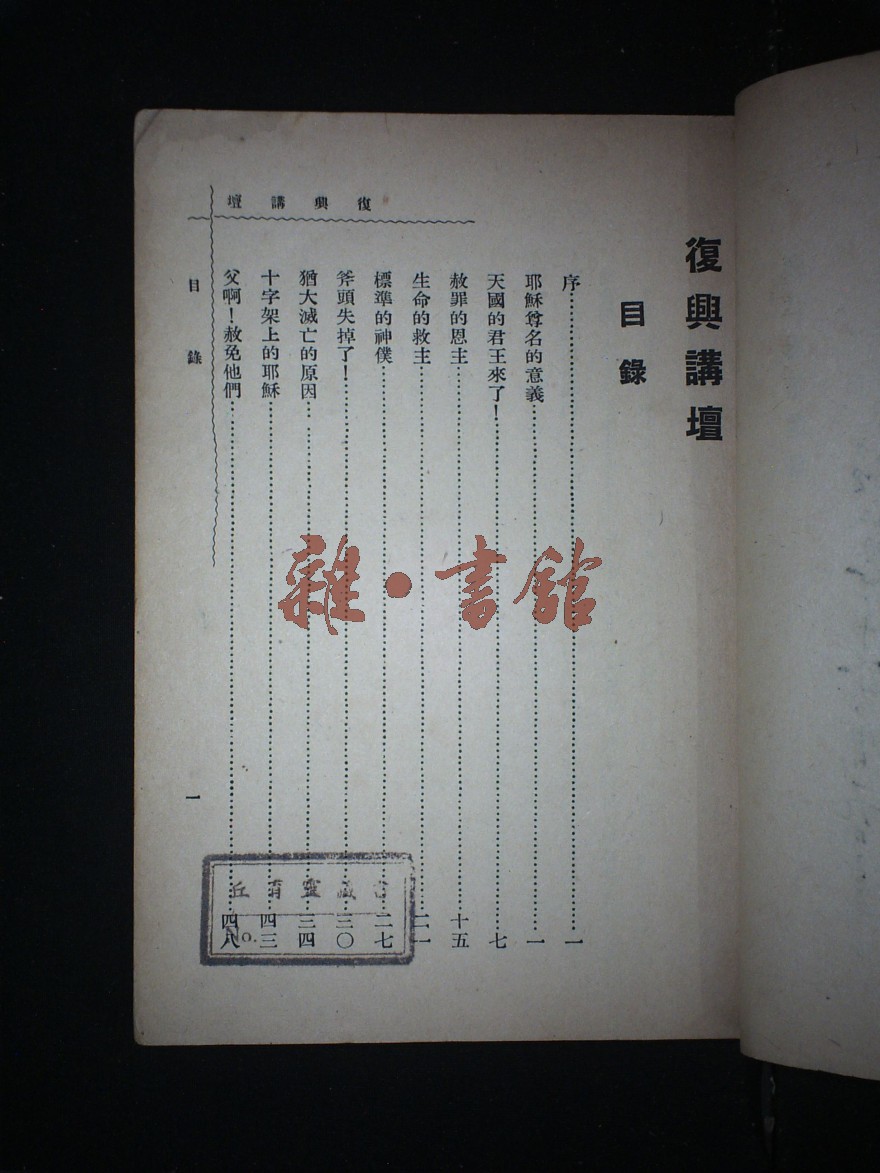 復興講壇
目錄
序……一
耶穌尊名的意義……一
天國的君王來了！……七
赦罪的恩主……十五
生命的救主……二一
標準的神僕……二七
斧頭失掉了！……三〇
猶大滅亡的原因……三四
十字架上的耶穌……四三
父啊！赦免他們……四八
復興講壇
目錄
一
雜·書館
No.